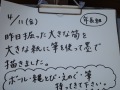 4/11(金)
年長組
昨日掘った大きな筍を
大きな紙に筆を使って墨で
描きました。
ボール・縄とび・えのぐ・筆
持ってきて下さい。